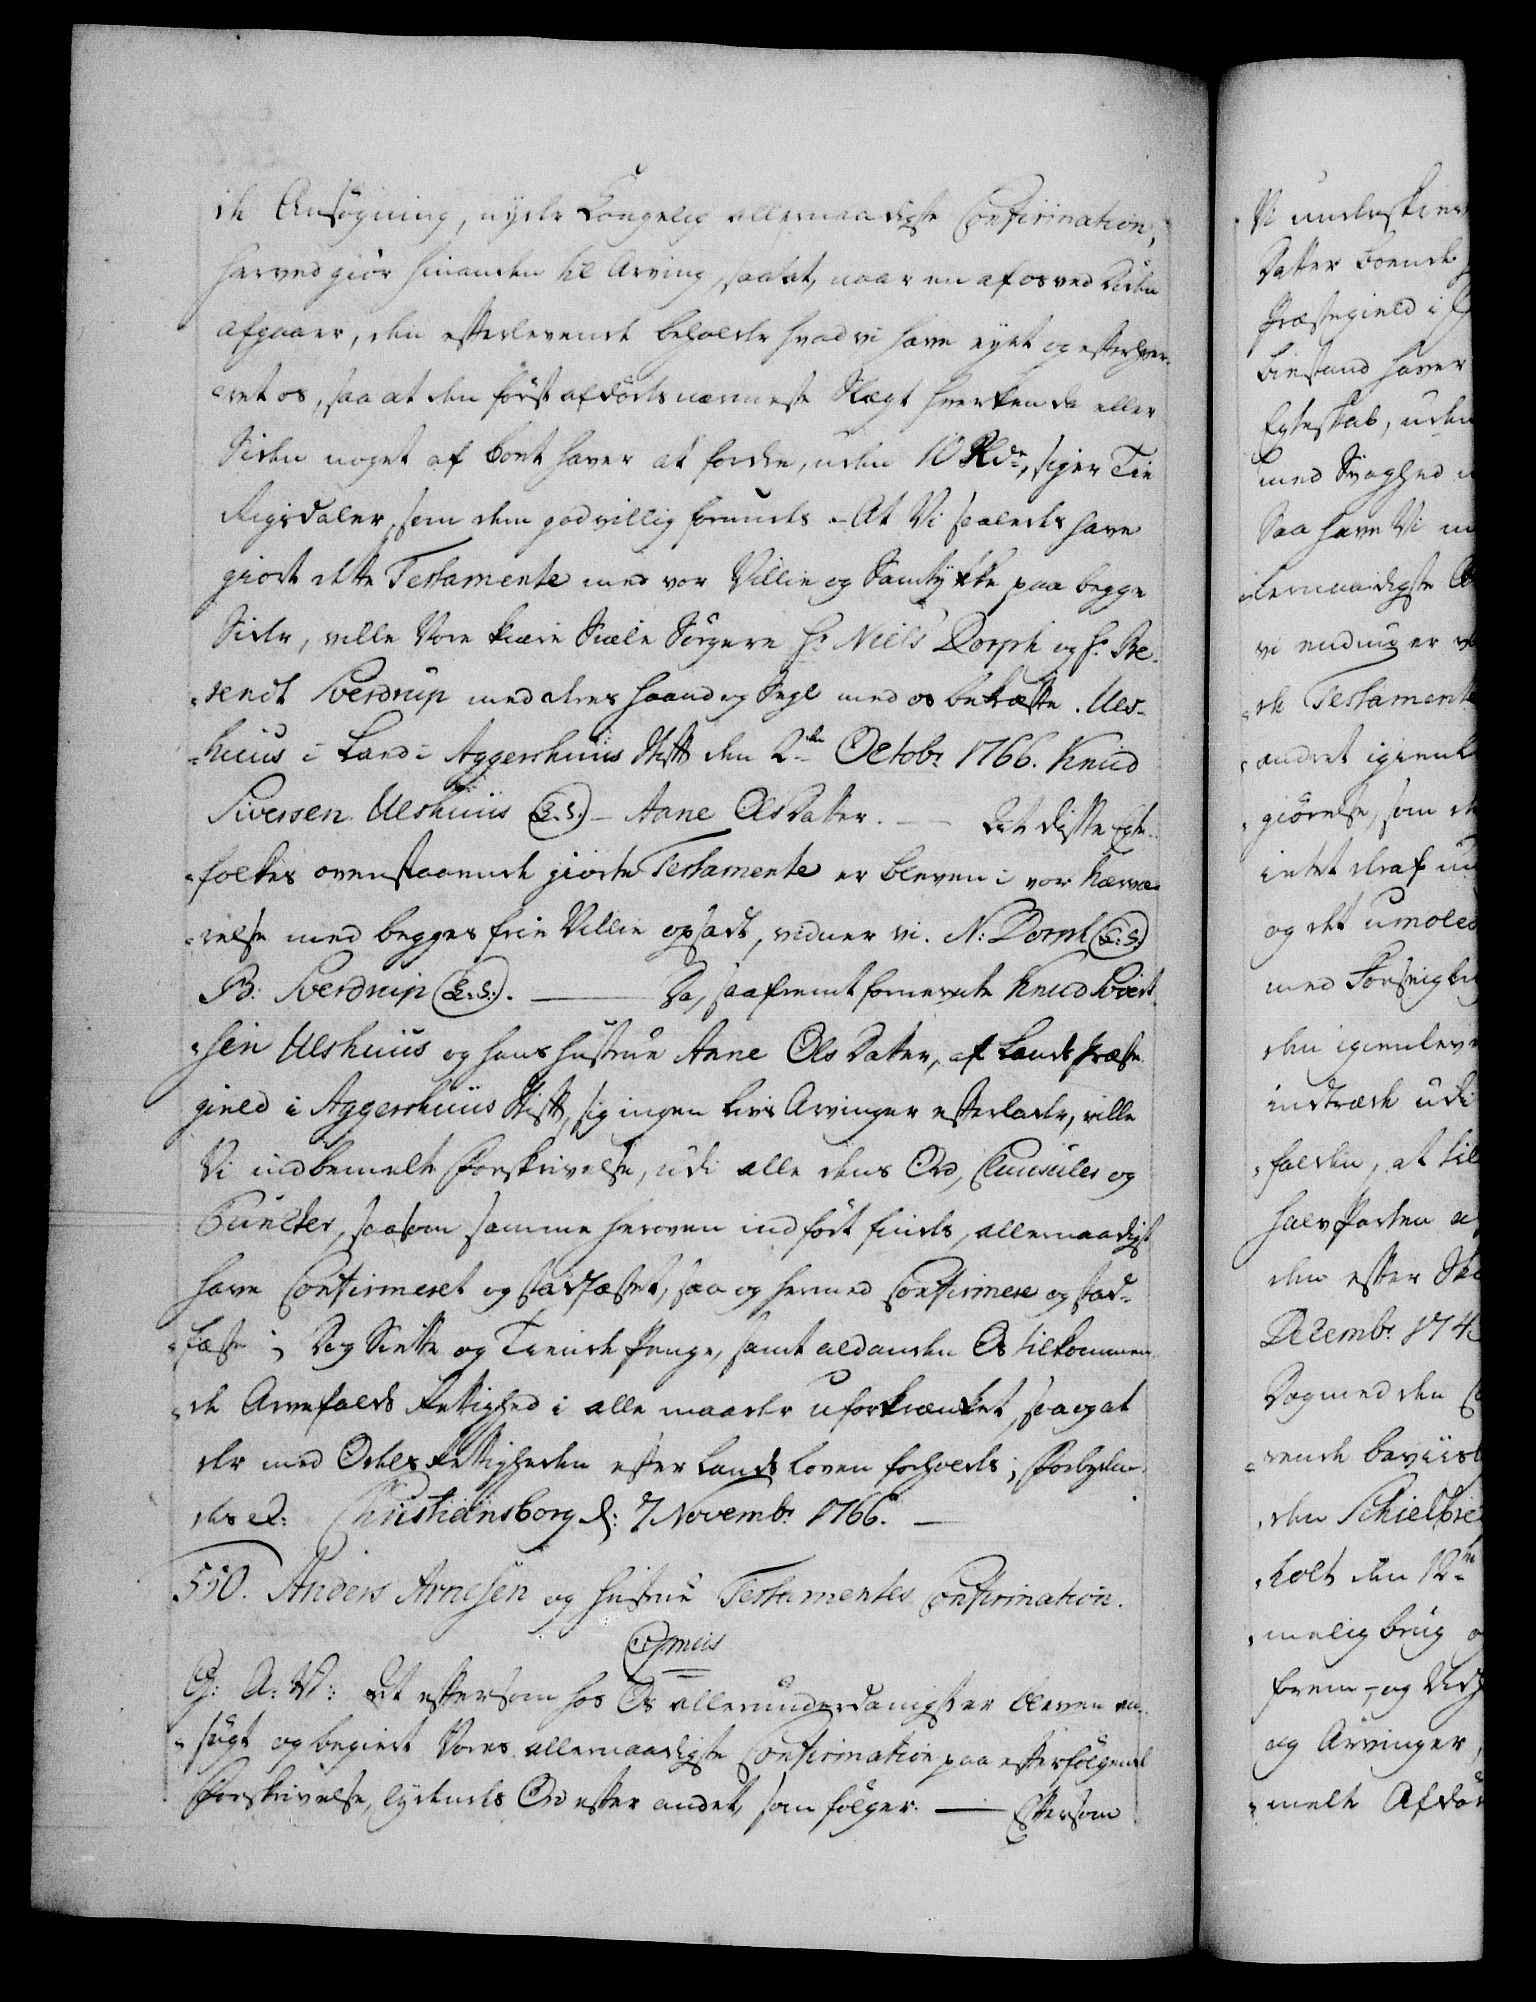 de Ansøgning, nyde Kongelig allernaadigste Confirmation,
herved giør hinanden til Arving, saa at, naar en af os ved Døden
afgaaer, den efterlevende beholder hvad vi have eyet og efterhver-
=vet os, saa at den først afdødes nærmeste Slægt hverken da eller
Siden noget af boet haver at fordre, uden 10 Rdr, siger Tie
Rigsdaler, som dem godvillig forundes. At Vi saaledes have
giort dette Testamente med vor Villie og Samtykke paa begge
Sider, ville Vore kiære Siæle Sørgere Hr Niels Dorph og Hr Be-
=rendt Sverdrup med deres Haand og Segl med os bekræfte. Uls-
=huus i Land i Aggershuus Stift den 2den Octobr 1766. Knud
Siversen Ulshuus (L.S.) – Anne OlsDatter. — At disse Egte-
=folkes ovenstaaende giorte Testamente er bleven i vor Nærvæ-
=relse med begges frie Villie opsadt, vidner vi. N: Dorph (L:S:)
B: Sverdrup (L:S:). — Da, saafremt fornevnte Knud Sivert-
=sen Ulshuus og hans Hustrue Anne OlsDatter, af Lands Præste
gield i Aggershuus Stift, sig ingen Livs Arvinger efterlader, ville
Vi indbemelte Forskrivelse, udi alle dens Ord, Clausuler og
Puncter, saasom samme heroven indført findes, allernaadigst
have Confirmeret og stadfæstet, saa og hermed Confirmere og stad-
=fæste; Dog Siette og Tiende Penge, samt ald anden Os tilkommen-
=de Arvefalds Rettighed i alle maader uforkrænket, saa og at
der med Odels Rettigheden efter Lands Loven forholdes; Forbyden-
des &: Christiansborg d: 7 Novembr 1766. —
550. Anders Arnesen og Hustrue Testamentes Confirmation.
Opmiis
C: A: V: At eftersom hos Os allerunderdanigst er bleven an-
=søgt og begiert Vores allernaadigste Confirmation paa efterfølgende
Forskrivelse, lydendes Ord efter andet, som følger. — Eftersom
Vi underskrev
Datter boende
Præstegield i
biestand haver
Egteskab, uden
med Svaghed
Saa have Vi
=lernaadigste
vi endnu er
=de Testamente
=andret igienl
=giørelse, som
intet deraf
og det umoled
med Forsigtig
den igienleve
indtræde udi
=falden, at til
halv Parten
den efter Ski
Decembr 174
Dog med den
=rende beviisl
=den Schielbre
=holt den 12te
=melig brug
frem- og Ved
og Arvinger,
=melte Afdø